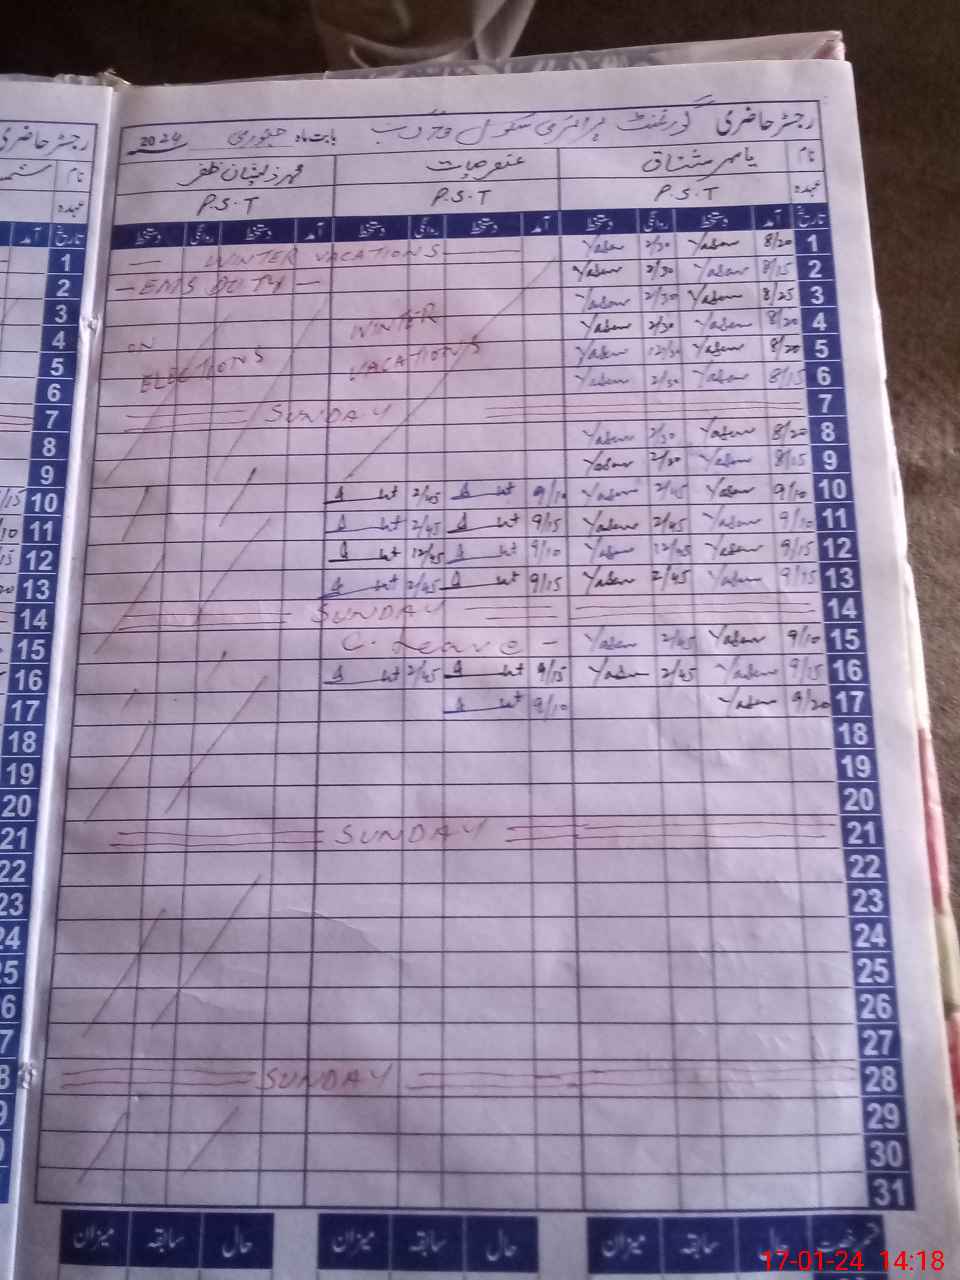 رجسٹر حاضری گورنمنٹ پرائمری سکول بابت ماہ جنوری 2024
نام یاسر مشتاق محمد ذیشان ظفر
عہدہ P.S.T P.S.T P.S.T
تاریخ آمد دستخط روانگی دستخط آمد دستخط روانگی دستخط آمد دستخط روانگی دستخط
1 8/20 Yaser 2/30 Yaser — WINTER VACATIONS —
2 8/15 Yaser 2/30 Yaser — EMIS DUTY —
3 8/25 Yaser 2/30 Yaser
4 8/20 Yaser 2/30 Yaser WINTER ON
5 8/20 Yaser 12/30 Yaser VACATIONS ELECTIONS
6 8/15 Yaser 2/30 Yaser
7 SUNDAY
8 8/20 Yaser 2/30 Yaser
9 8/15 Yaser 2/30 Yaser
10 9/10 Yaser 2/45 Yaser 9/10 2/45
11 9/10 Yaser 2/45 Yaser 9/15 2/45
12 9/15 Yaser 12/45 Yaser 9/10 12/45
13 9/15 Yaser 2/45 Yaser 9/15 2/45
14 SUNDAY
15 9/10 Yaser 2/45 Yaser C. Leave –
16 9/15 Yaser 2/45 Yaser 9/15 2/45
17 9/20 Yaser 9/10
18
19
20
21 SUNDAY
22
23
24
25
26
27
28 SUNDAY
29
30
31
قسم رخصت حال سابقہ میزان حال سابقہ میزان حال سابقہ میزان
17-01-24 14:18